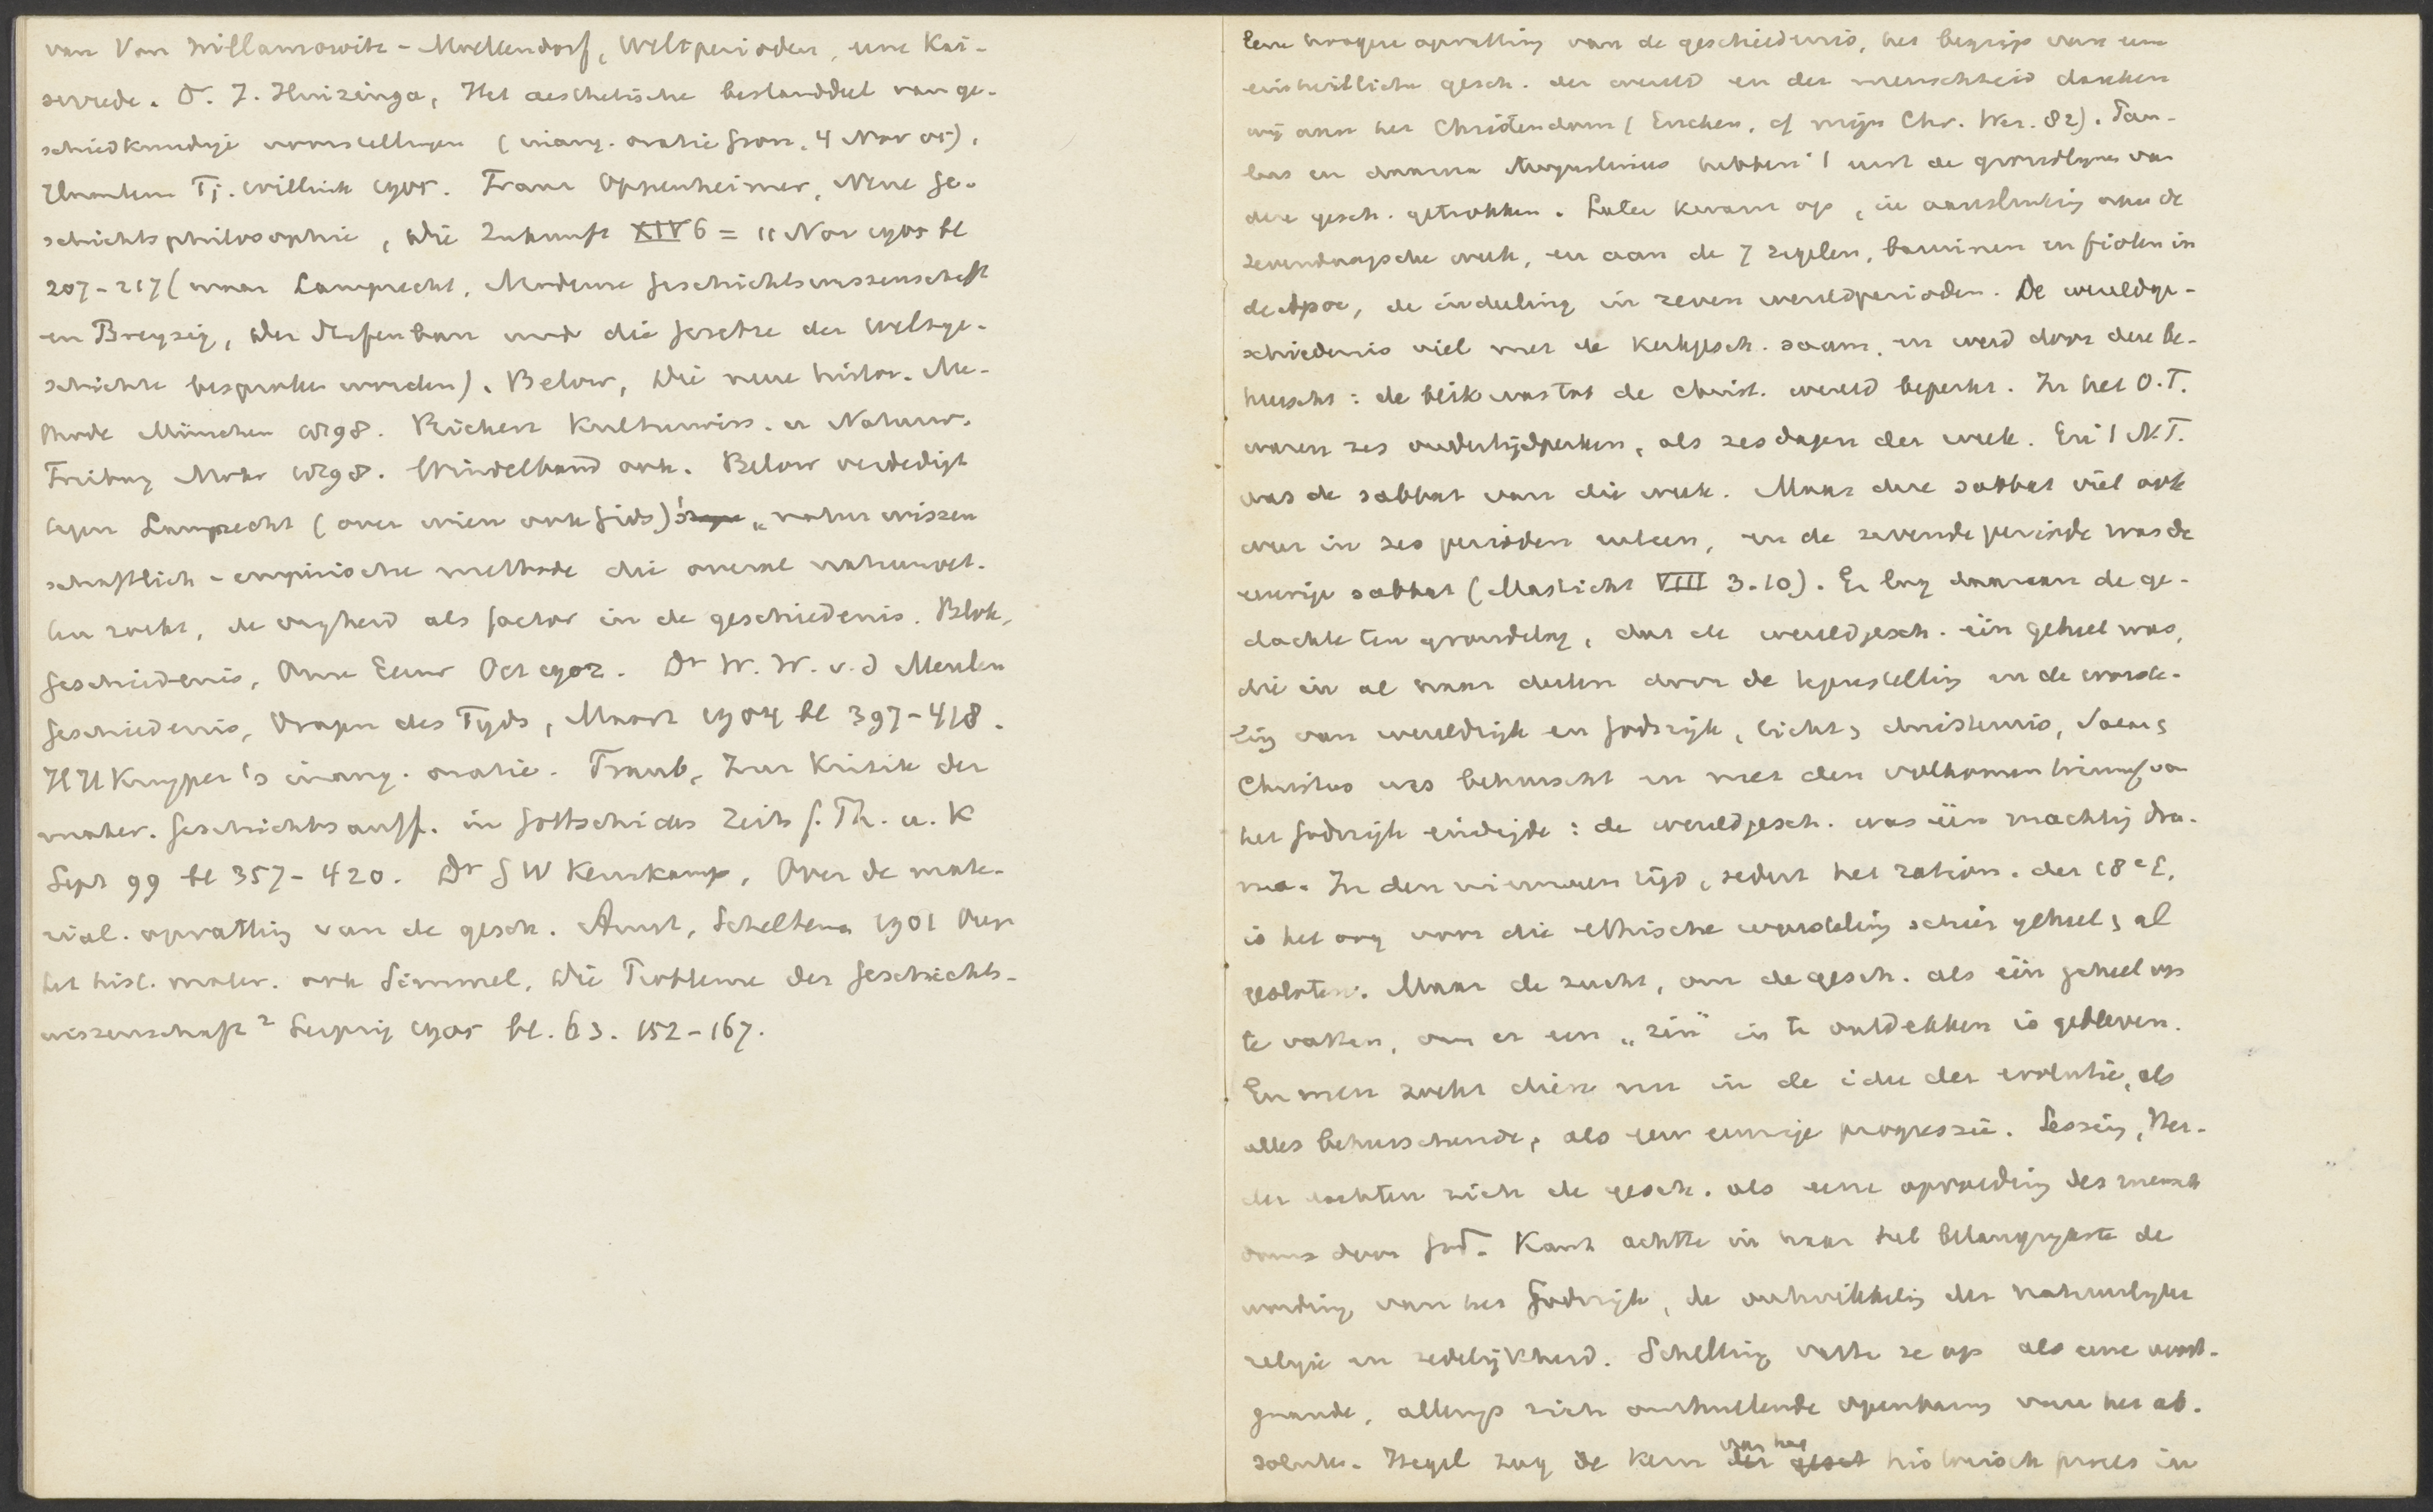 van Von Willamowitz-Moellendorf, Weltperioden, eine Kai-
serrede. Dr. J. Huizinga, Het aesthetische bestanddeel van ge-
schiedkundige voorstellingen (inaug. oratie Gron. 4 Nov 05),
Haarlem Tj. Willink 1905. Franz Oppenheimer, Neue Ge-
schichtsphilosophie, Die Zukunft XIV 6 = 11 Nov 1905 bl
207-217 (waar Lamprecht, Moderne Geschichtswissenschaft
en Breysig, Der Stufenbau und die Gesetze der Weltge-
schichte besproken worden). Below, Die neue histor. Me-
thode München 1898. Rickert Kulturwiss. u Naturw.
Freiburg Mohr 1898. Windelband ook. Below verdedigt
tegen Lamprecht (over wien ook Gids)'s „naturwissen
schaftlich-empirische methode die overal natuurwet-
ten zoekt, de vrijheid als factor in de geschiedenis. Blok,
Geschiedenis, Onze Eeuw Oct 1902. Dr W. W. v.d Meulen
Geschiedenis, Vragen des Tijds, Maart 1904 bl 397-418.
HH Kuyper's inaug. oratie. Traub, Zur Kritik der
mater. Geschichtsauff. in Gottschicks Zeits f. Th. u. K
Sept 99 bl 357-420. Dr G W Kernkamp, Over de mate-
rial. opvatting van de gesch. Amst, Scheltema 1901 Over
het hist. mater. ook Simmel, Die Probleme der Geschichts-
wissenschaft² Leipzig 1905 bl. 63. 152-167.
Eene hoogere opvatting van de geschiedenis, het begrip van eene
einheitliche gesch. der wereld en der menschheid danken
wij aan het Christendom (Eucken, cf mijn Chr. Wer. 82). Pau-
lus en daarna Augustinus hebben 't eerst de grondlijnen van
deze gesch. getrokken. Later kwam op, in aansluiting aan de
zevendaagsche week, en aan de 7 zegelen, bazuinen en fiolen in
de Apoc, de indeeling in zeven wereldperioden. De wereldge-
schiedenis viel met de kerkgesch. saam, en werd door deze be-
heerscht: de blik was tot de christ. wereld beperkt. In het O.T.
waren zes wereldtijdperken, als zes dagen der week. En 't N.T.
was de sabbat van die week. Maar deze sabbat viel ook
weer in zes perioden uiteen, en de zevende periode was de
eeuwige sabbat (Mastricht VIII 3.10). Er lag daaraan de ge-
dachte ten grondslag, dat de wereldgesch. één geheel was,
die in al haar deelen door de tegenstelling en de worste-
ling van wereldrijk en Godsrijk, licht & duisternis, Satan &
Christus was beheerscht en met den volkomen triumf van
het Godsrijk eindigde: de wereldgesch. was één machtig dra-
ma. In den nieuweren tijd, sedert het ration. der 18e E.
is het oog voor die ethische worsteling schier geheel & al
gesloten. Maar de zucht, om de gesch. als één geheel op
te vatten, om er een „zin" in te ontdekken is gebleven.
En men zoekt dien nu in de idee der evolutie, als
alles beheerschende, als een eeuwige progressie. Lessing, Her-
der dachten zich de gesch. als eene opvoeding des mensch
doms door God. Kant achtte in haar het belangrijkste de
wording van het Godsrijk, de ontwikkeling der natuurlijke
religie en zedelijkheid. Schelling vatte ze op als eene voort-
gaande, allengs zich onthullende openbaring van het ab-
solute. Hegel zag de kern van het historisch proces in